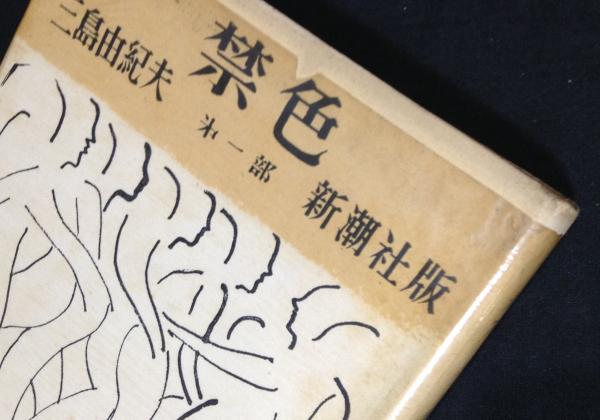 三島由紀夫
禁色
第一部
新潮社版